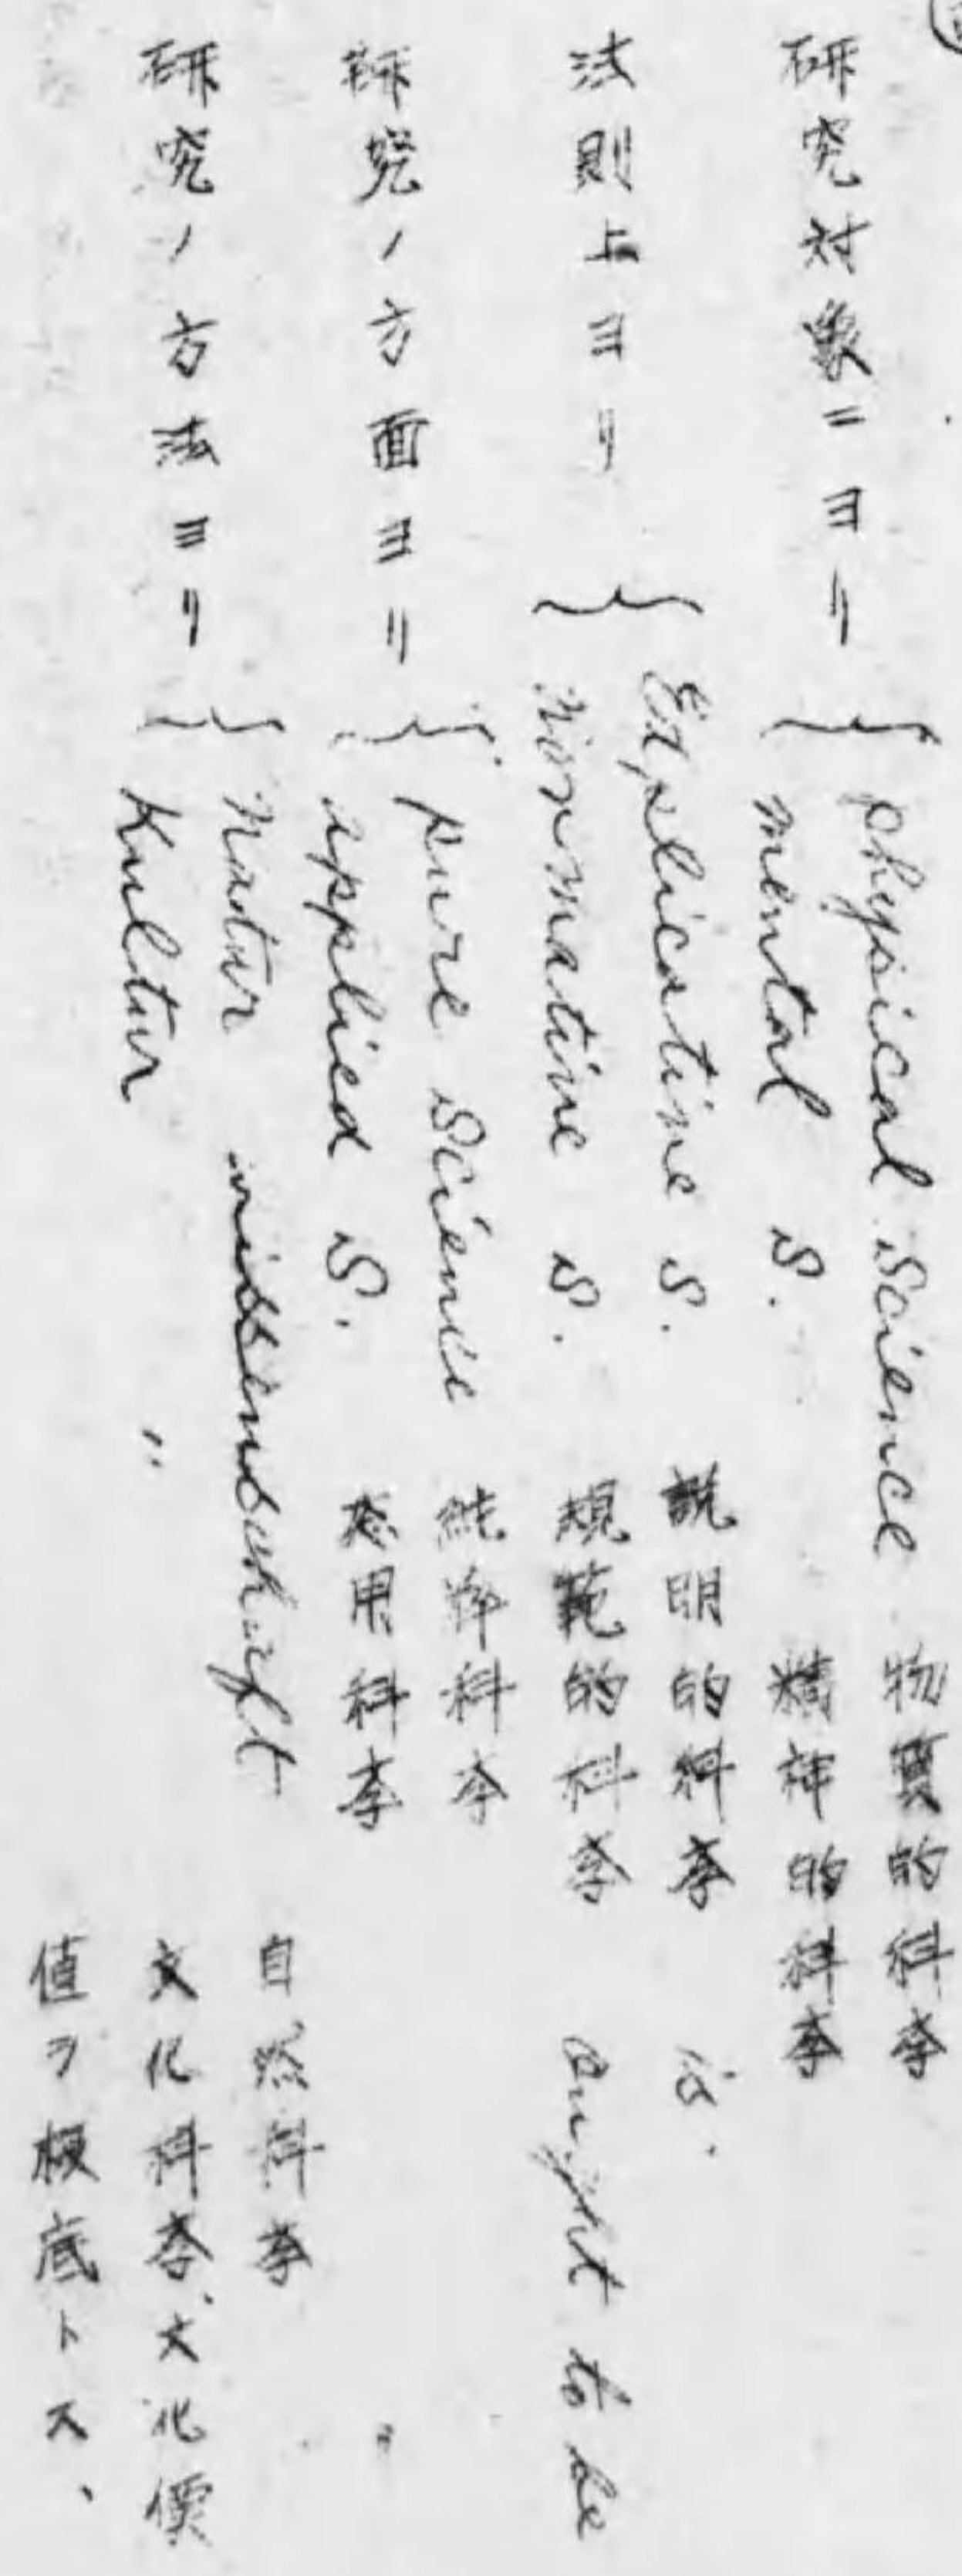 研究対象ニヨリ
physical Science 物質的科学
mental S. 精神的科学
法則上ヨリ
Explicative S. 説明的科学 is.
Normative S. 規範的科学 ought to be
研究ノ方面ヨリ
pure Science 純粋科学
applied S. 応用科学
研究ノ方法ヨリ
Natur wissenschaft 自然科学
Kultur 〃 文化科学、文化價
値ヲ根底トス、